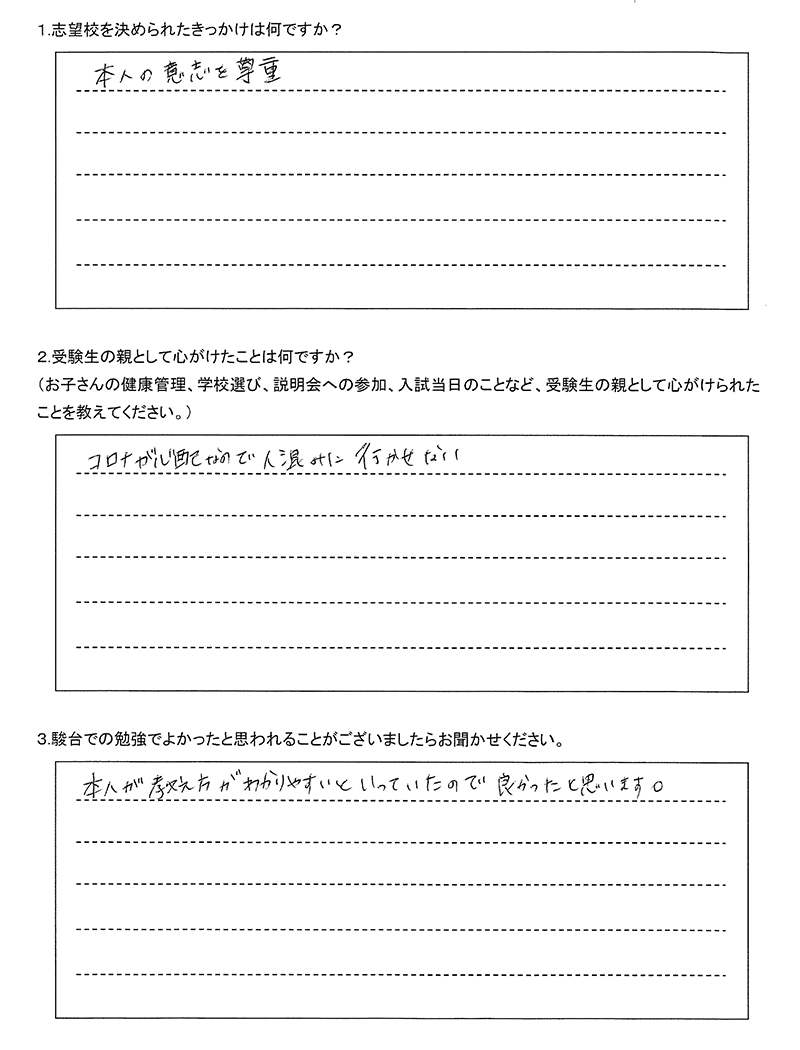 1.志望校を決められたきっかけは何ですか？
本人の意志を尊重
2.受験生の親として心がけたことは何ですか？
（お子さんの健康管理、学校選び、説明会への参加、入試当日のことなど、受験生の親として心がけられた
ことを教えてください。）
コロナが心配なので人混みに行かせない
3.駿台での勉強でよかったと思われることがございましたらお聞かせください。
本人が教え方がわかりやすいといっていたので良かったと思います。